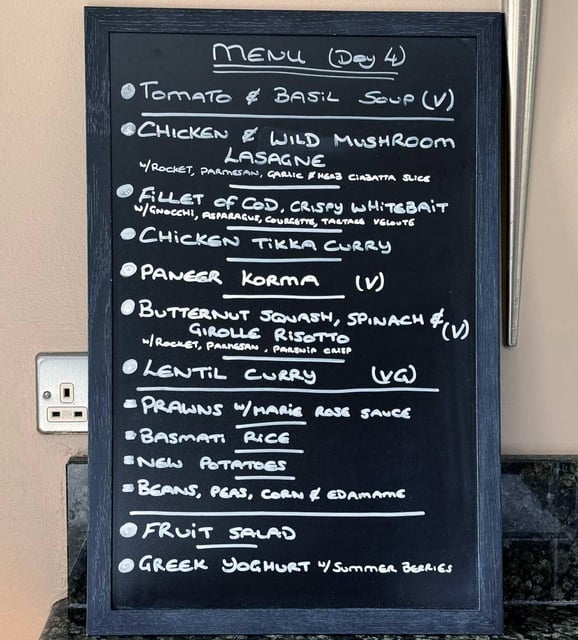 MENU (Day 4)
TOMATO & BASIL SOUP (V)
CHICKEN & WILD MUSHROOM
LASAGNE
w/ROCKET, PARMESAN, GARLIC & HERB CIABATTA SLICE
FILLET OF COD, CRISPY WHITEBAIT
w/GNOCCHI, ASPARAGUS, COURGETTE, TARTARE VELOUTE
CHICKEN TIKKA CURRY
PANEER KORMA (V)
BUTTERNUT SQUASH, SPINACH &
GIROLLE RISOTTO (V)
w/ROCKET, PARMESAN, PARSNIP CRISP
LENTIL CURRY (VG)
PRAWNS w/MARIE ROSE SAUCE
BASMATI RICE
NEW POTATOES
BEANS, PEAS, CORN & EDAMAME
FRUIT SALAD
GREEK YOGHURT w/SUMMER BERRIES